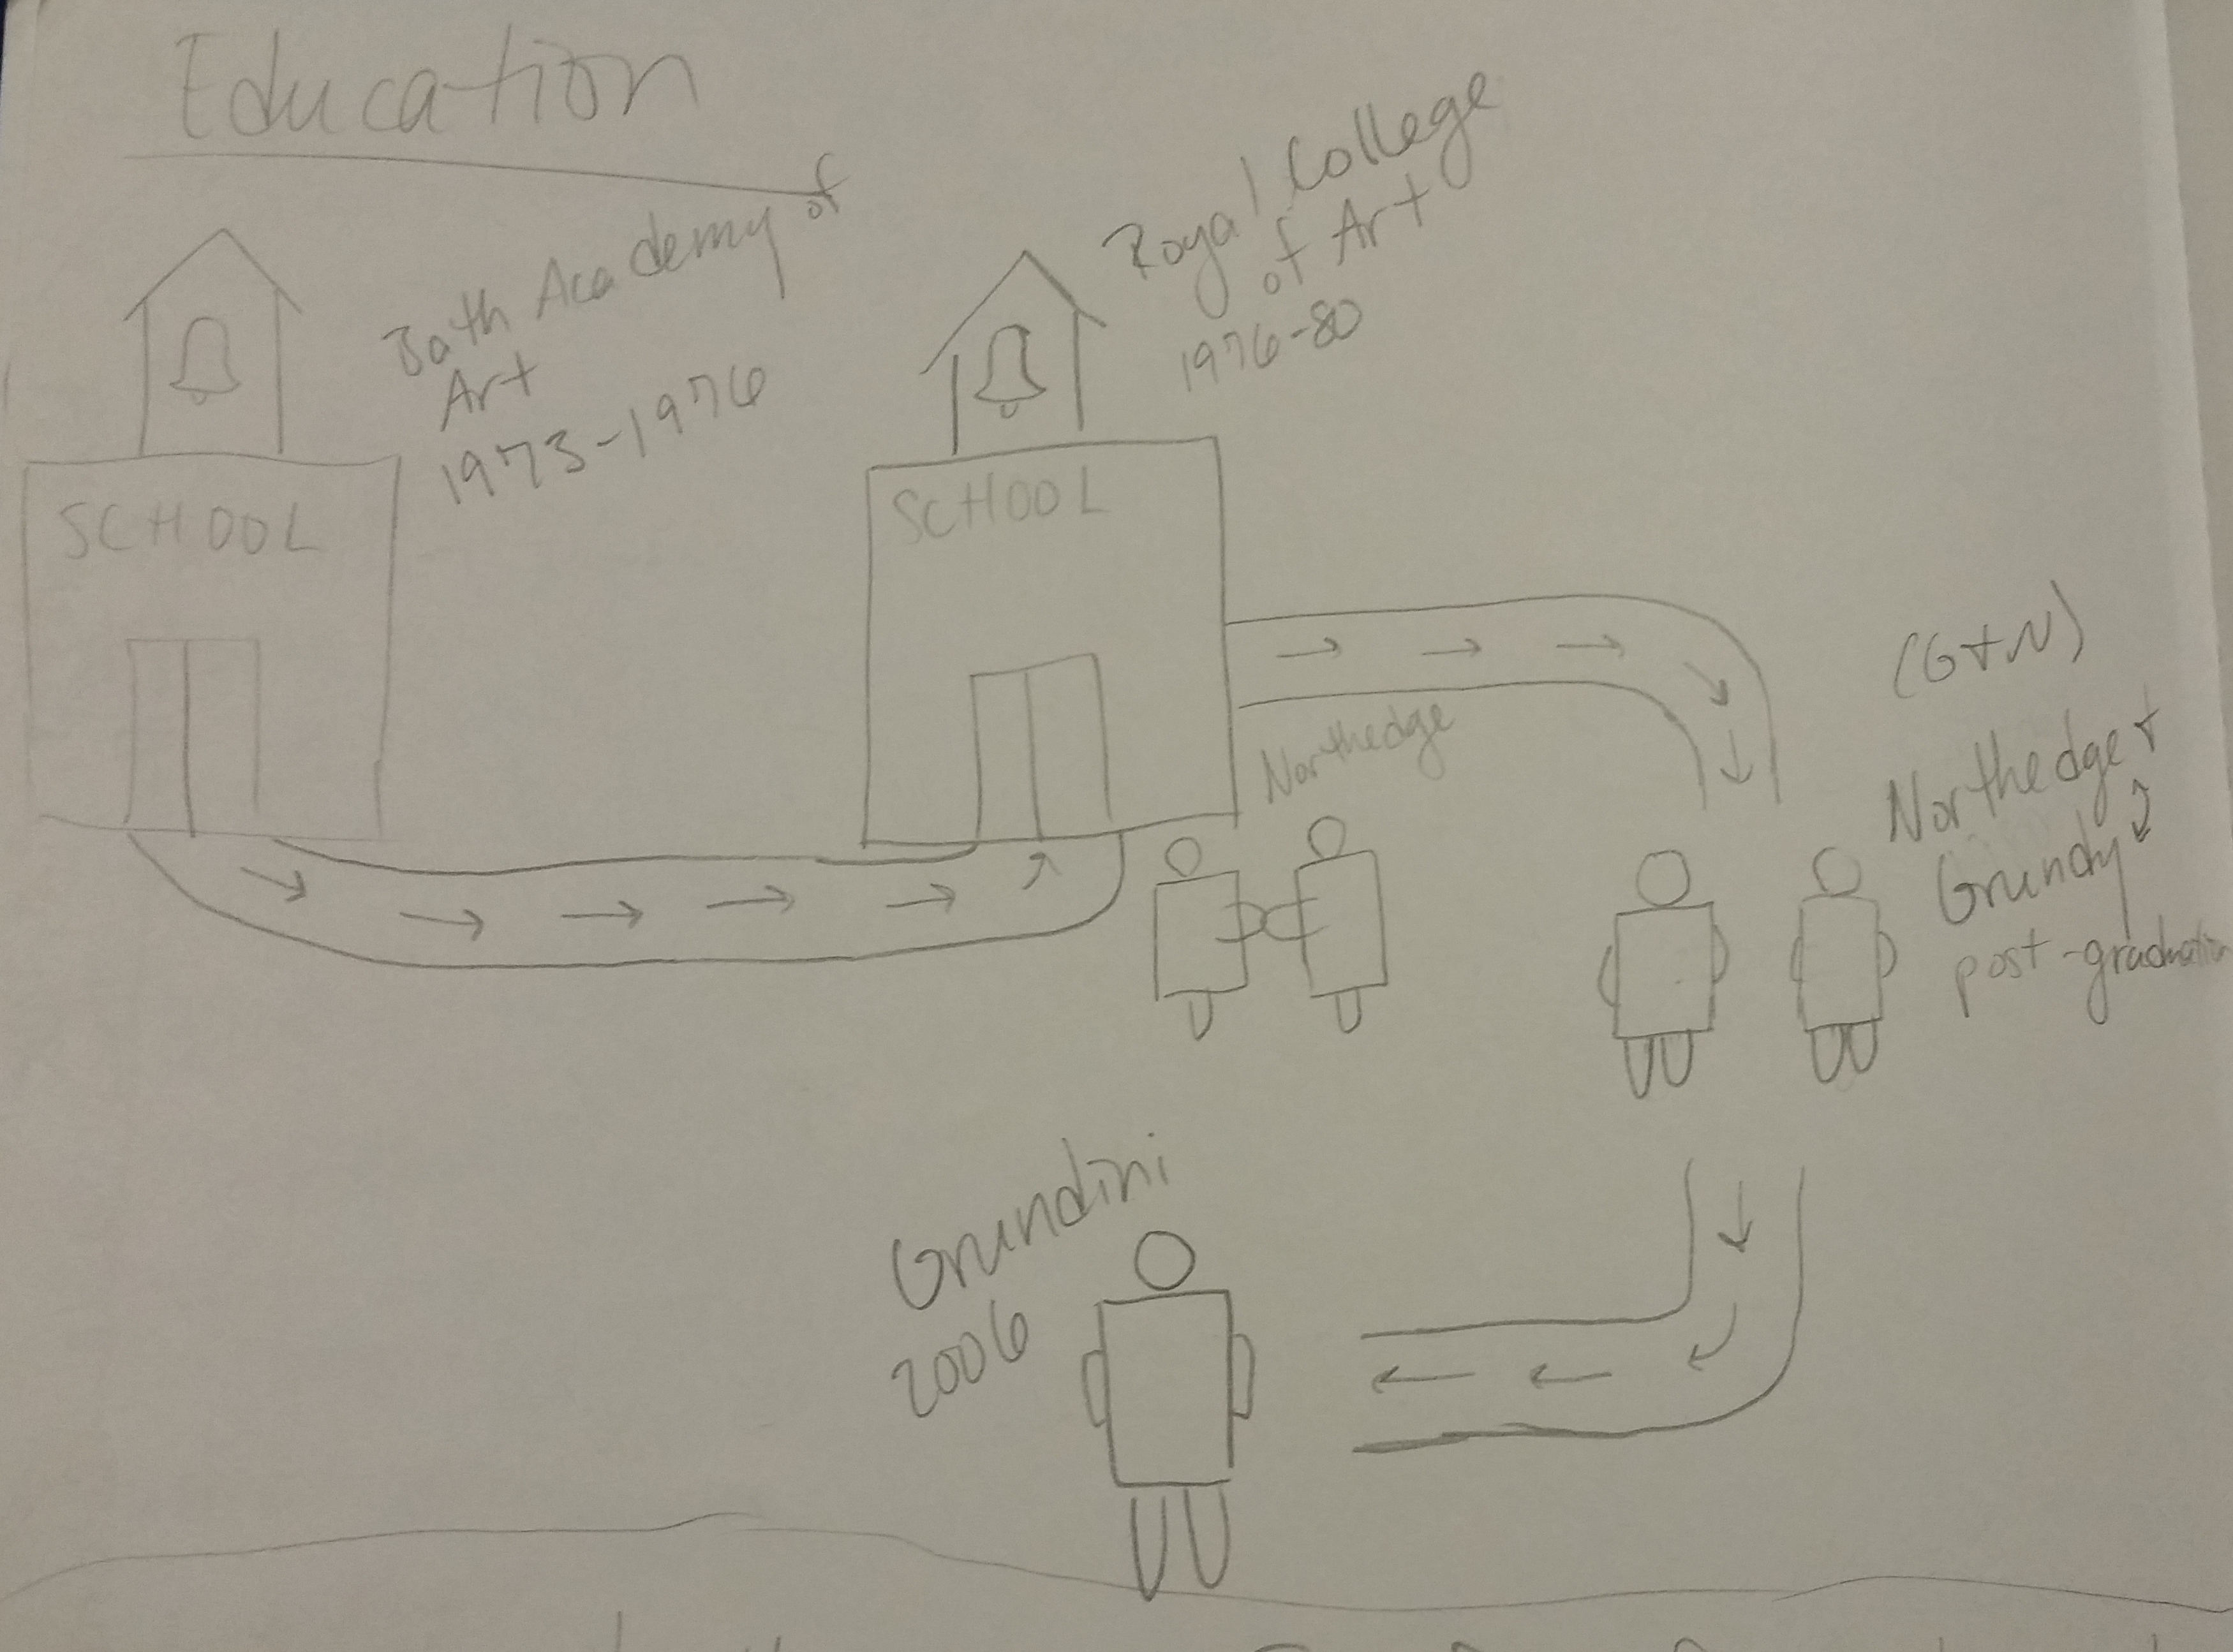 Education
Bath Academy of
Art
1973-1976
SCHOOL
Royal College
of Art
1976-80
SCHOOL
Northedge
(G+N)
Northedge +
Grundy
post-graduation
Grundini
2006